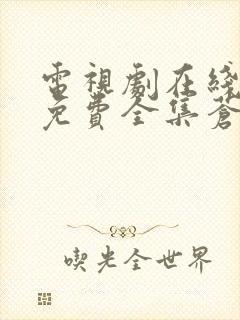 電視劇在綫
免費全集蒼
喫光全世界